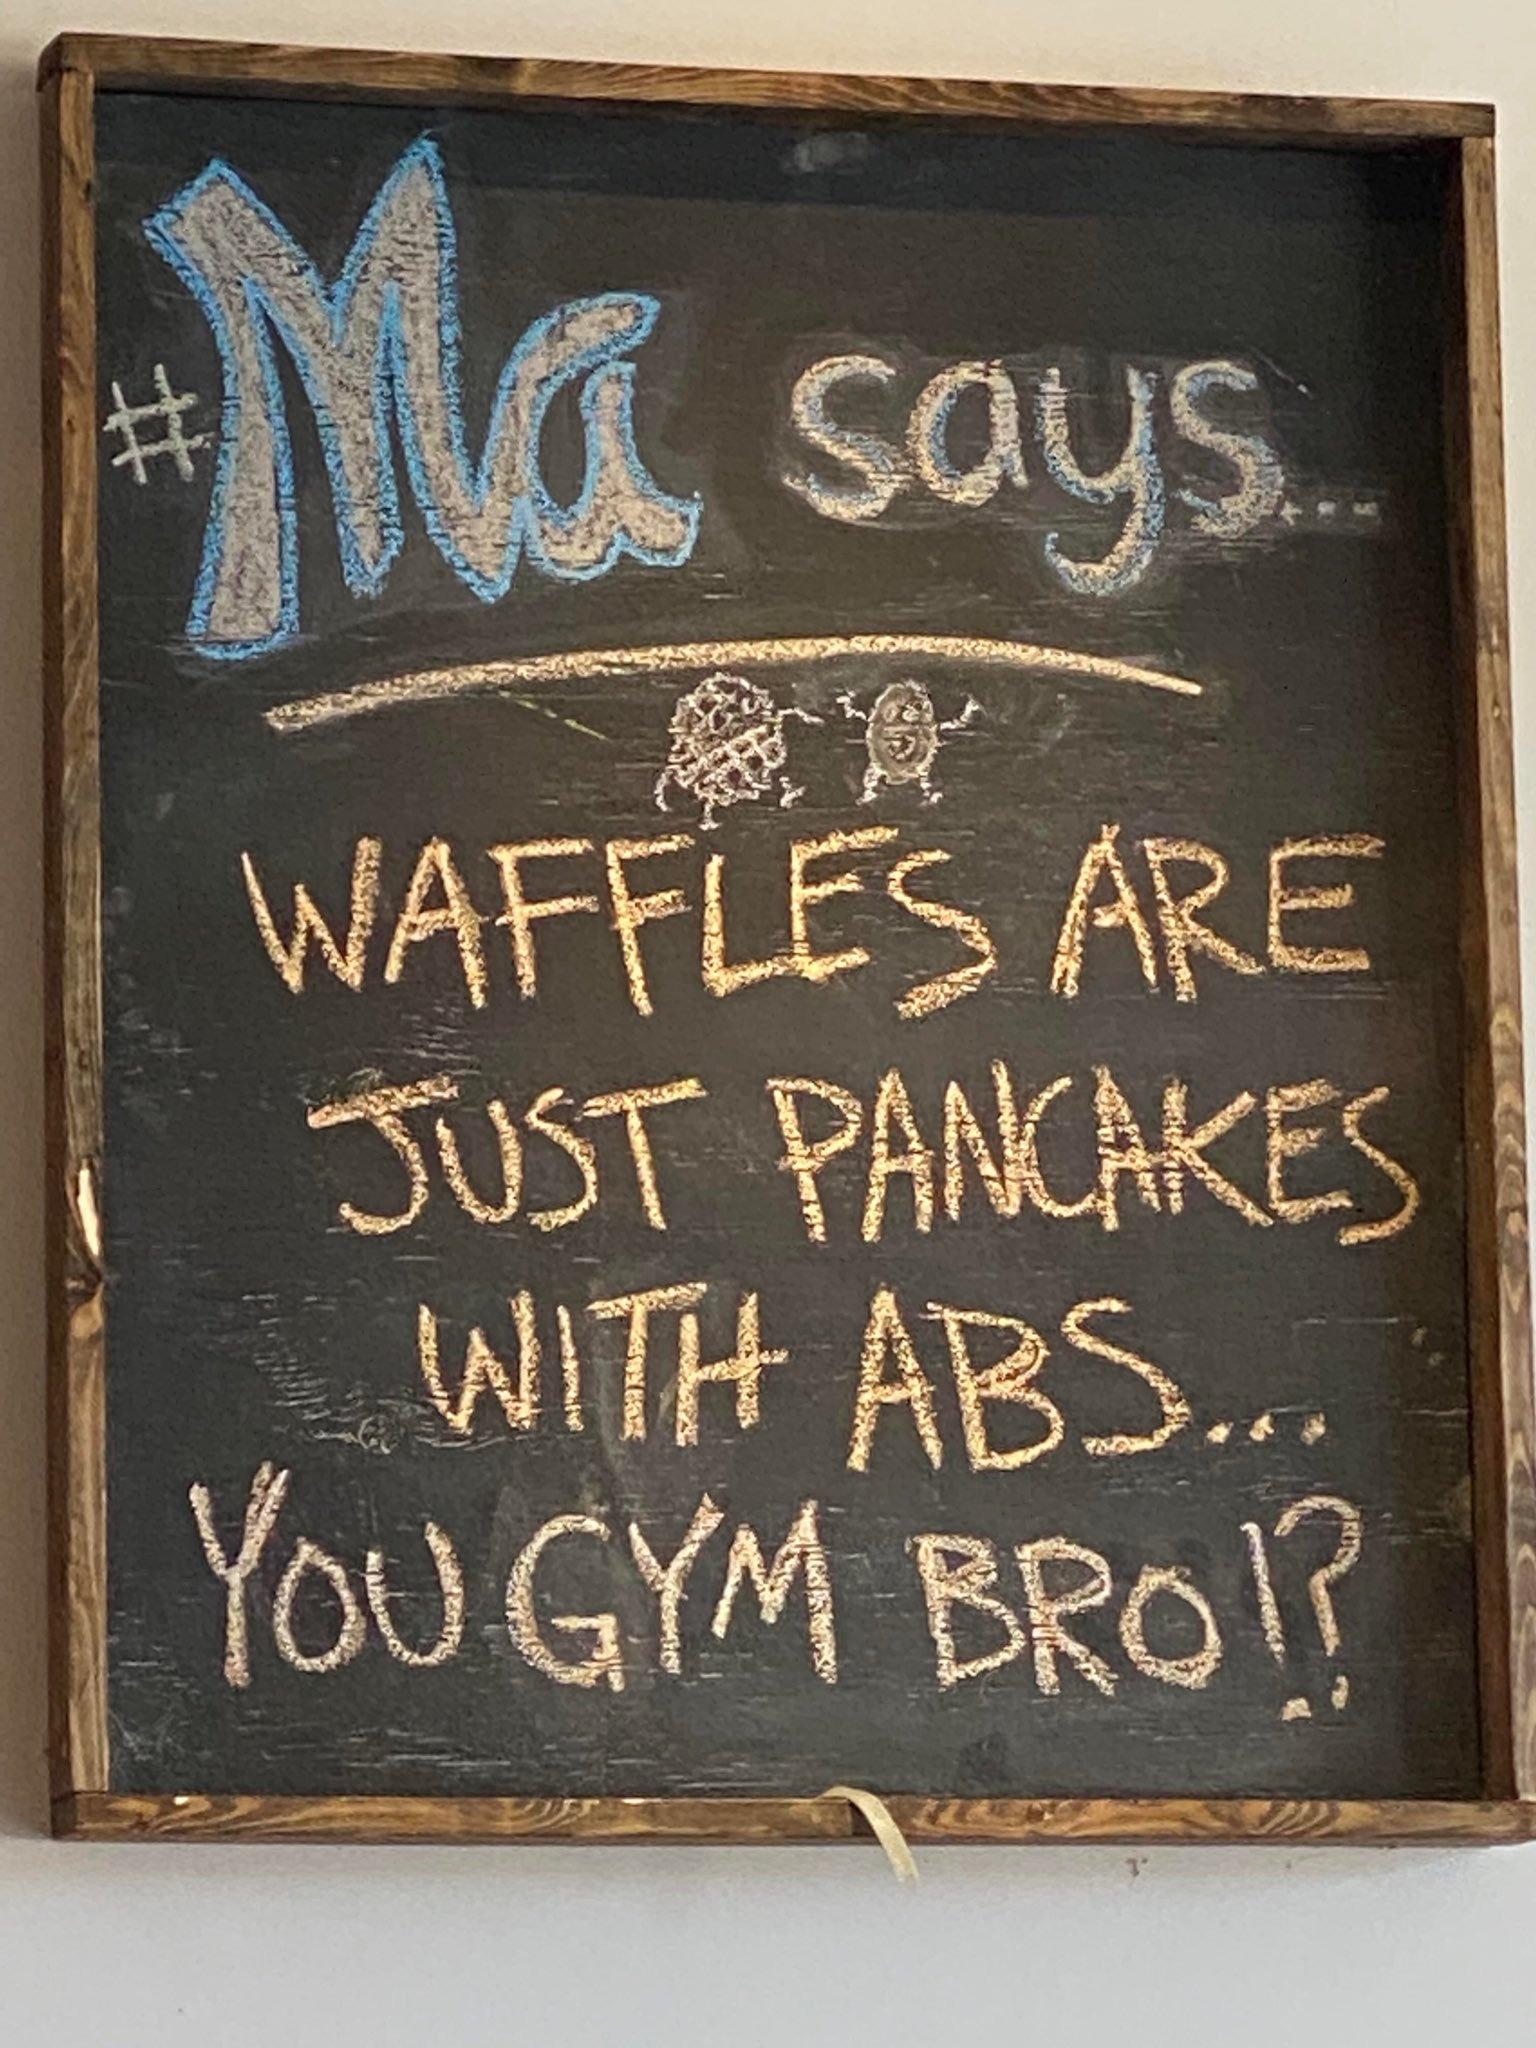 #Ma says...
WAFFLES ARE
JUST PANCAKES
WITH ABS...
YOU GYM BRO!?